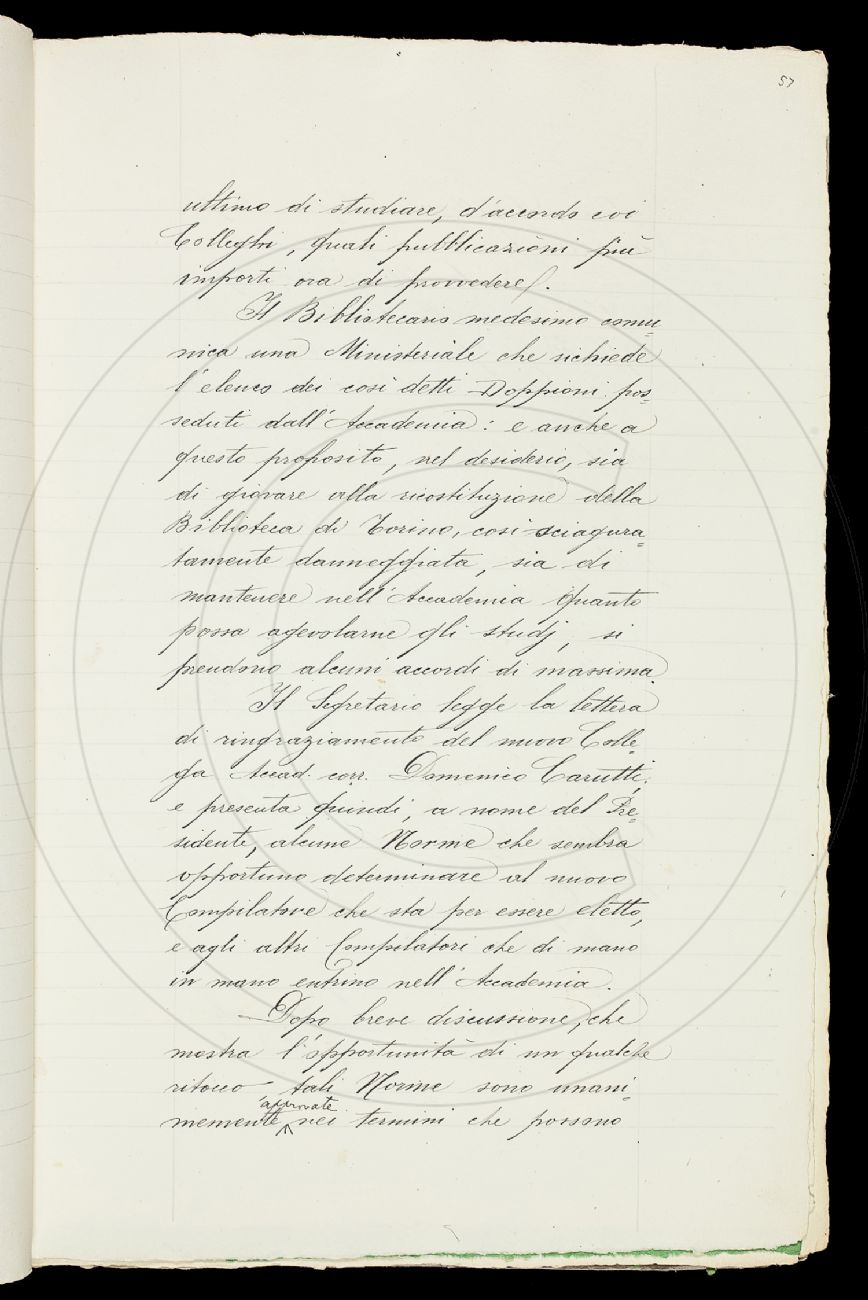 57
ultimo di studiare, d'accordo coi
Colleghi, quali pubblicazioni più
importi ora di provvedere.
Il Bibliotecario medesimo comu=
nica una Ministeriale che richiede
l'elenco dei così detti Doppioni pos=
seduti dall'Accademia: e anche a
questo proposito, nel desiderio, sia
di giovare alla ricostituzione della
Biblioteca di Torino, così sciagura=
tamente danneggiata, sia di
mantenere nell'Accademia quanto
possa agevolarne gli studj, si
prendono alcuni accordi di massima.
Il Segretario legge la lettera
di ringraziamento del nuovo Colle=
ga Accad. corr. Domenico Carutti;
e presenta quindi, a nome del Pre=
sidente, alcune Norme che sembra
opportuno determinare al nuovo
Compilatore che sta per essere eletto,
e agli altri Compilatori che di mano
in mano entrino nell'Accademia.
Dopo breve discussione, che
mostra l'opportunità di un qualche
ritocco - tali Norme sono unani=
memente approvate nei termini che possono